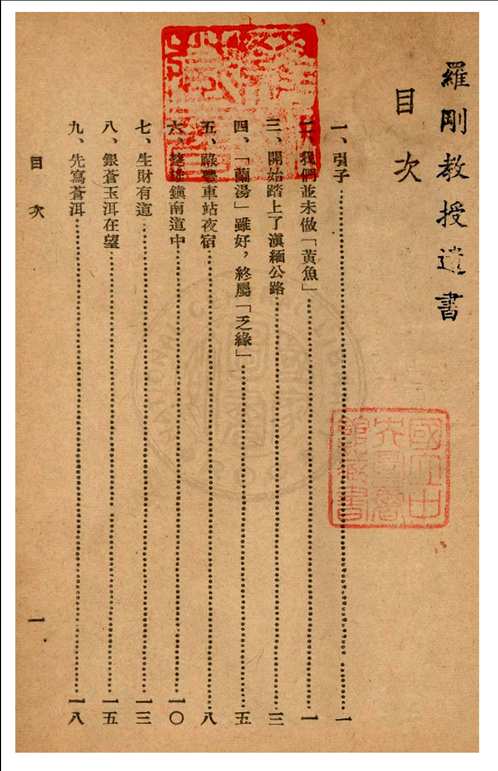 羅剛教授遺書
目次
一、引子……一
二、我們並未做「黃魚」……一
三、開始踏上了滇緬公路……三
四、「蘭湯」雖好，終屬「乏緣」……五
五、祿豐車站夜宿……八
六、楚雄鎮南道中……一〇
七、生財有道……一三
八、銀蒼玉洱在望……一五
九、先寫蒼洱……一八
目次
一
國立中央圖書館藏書